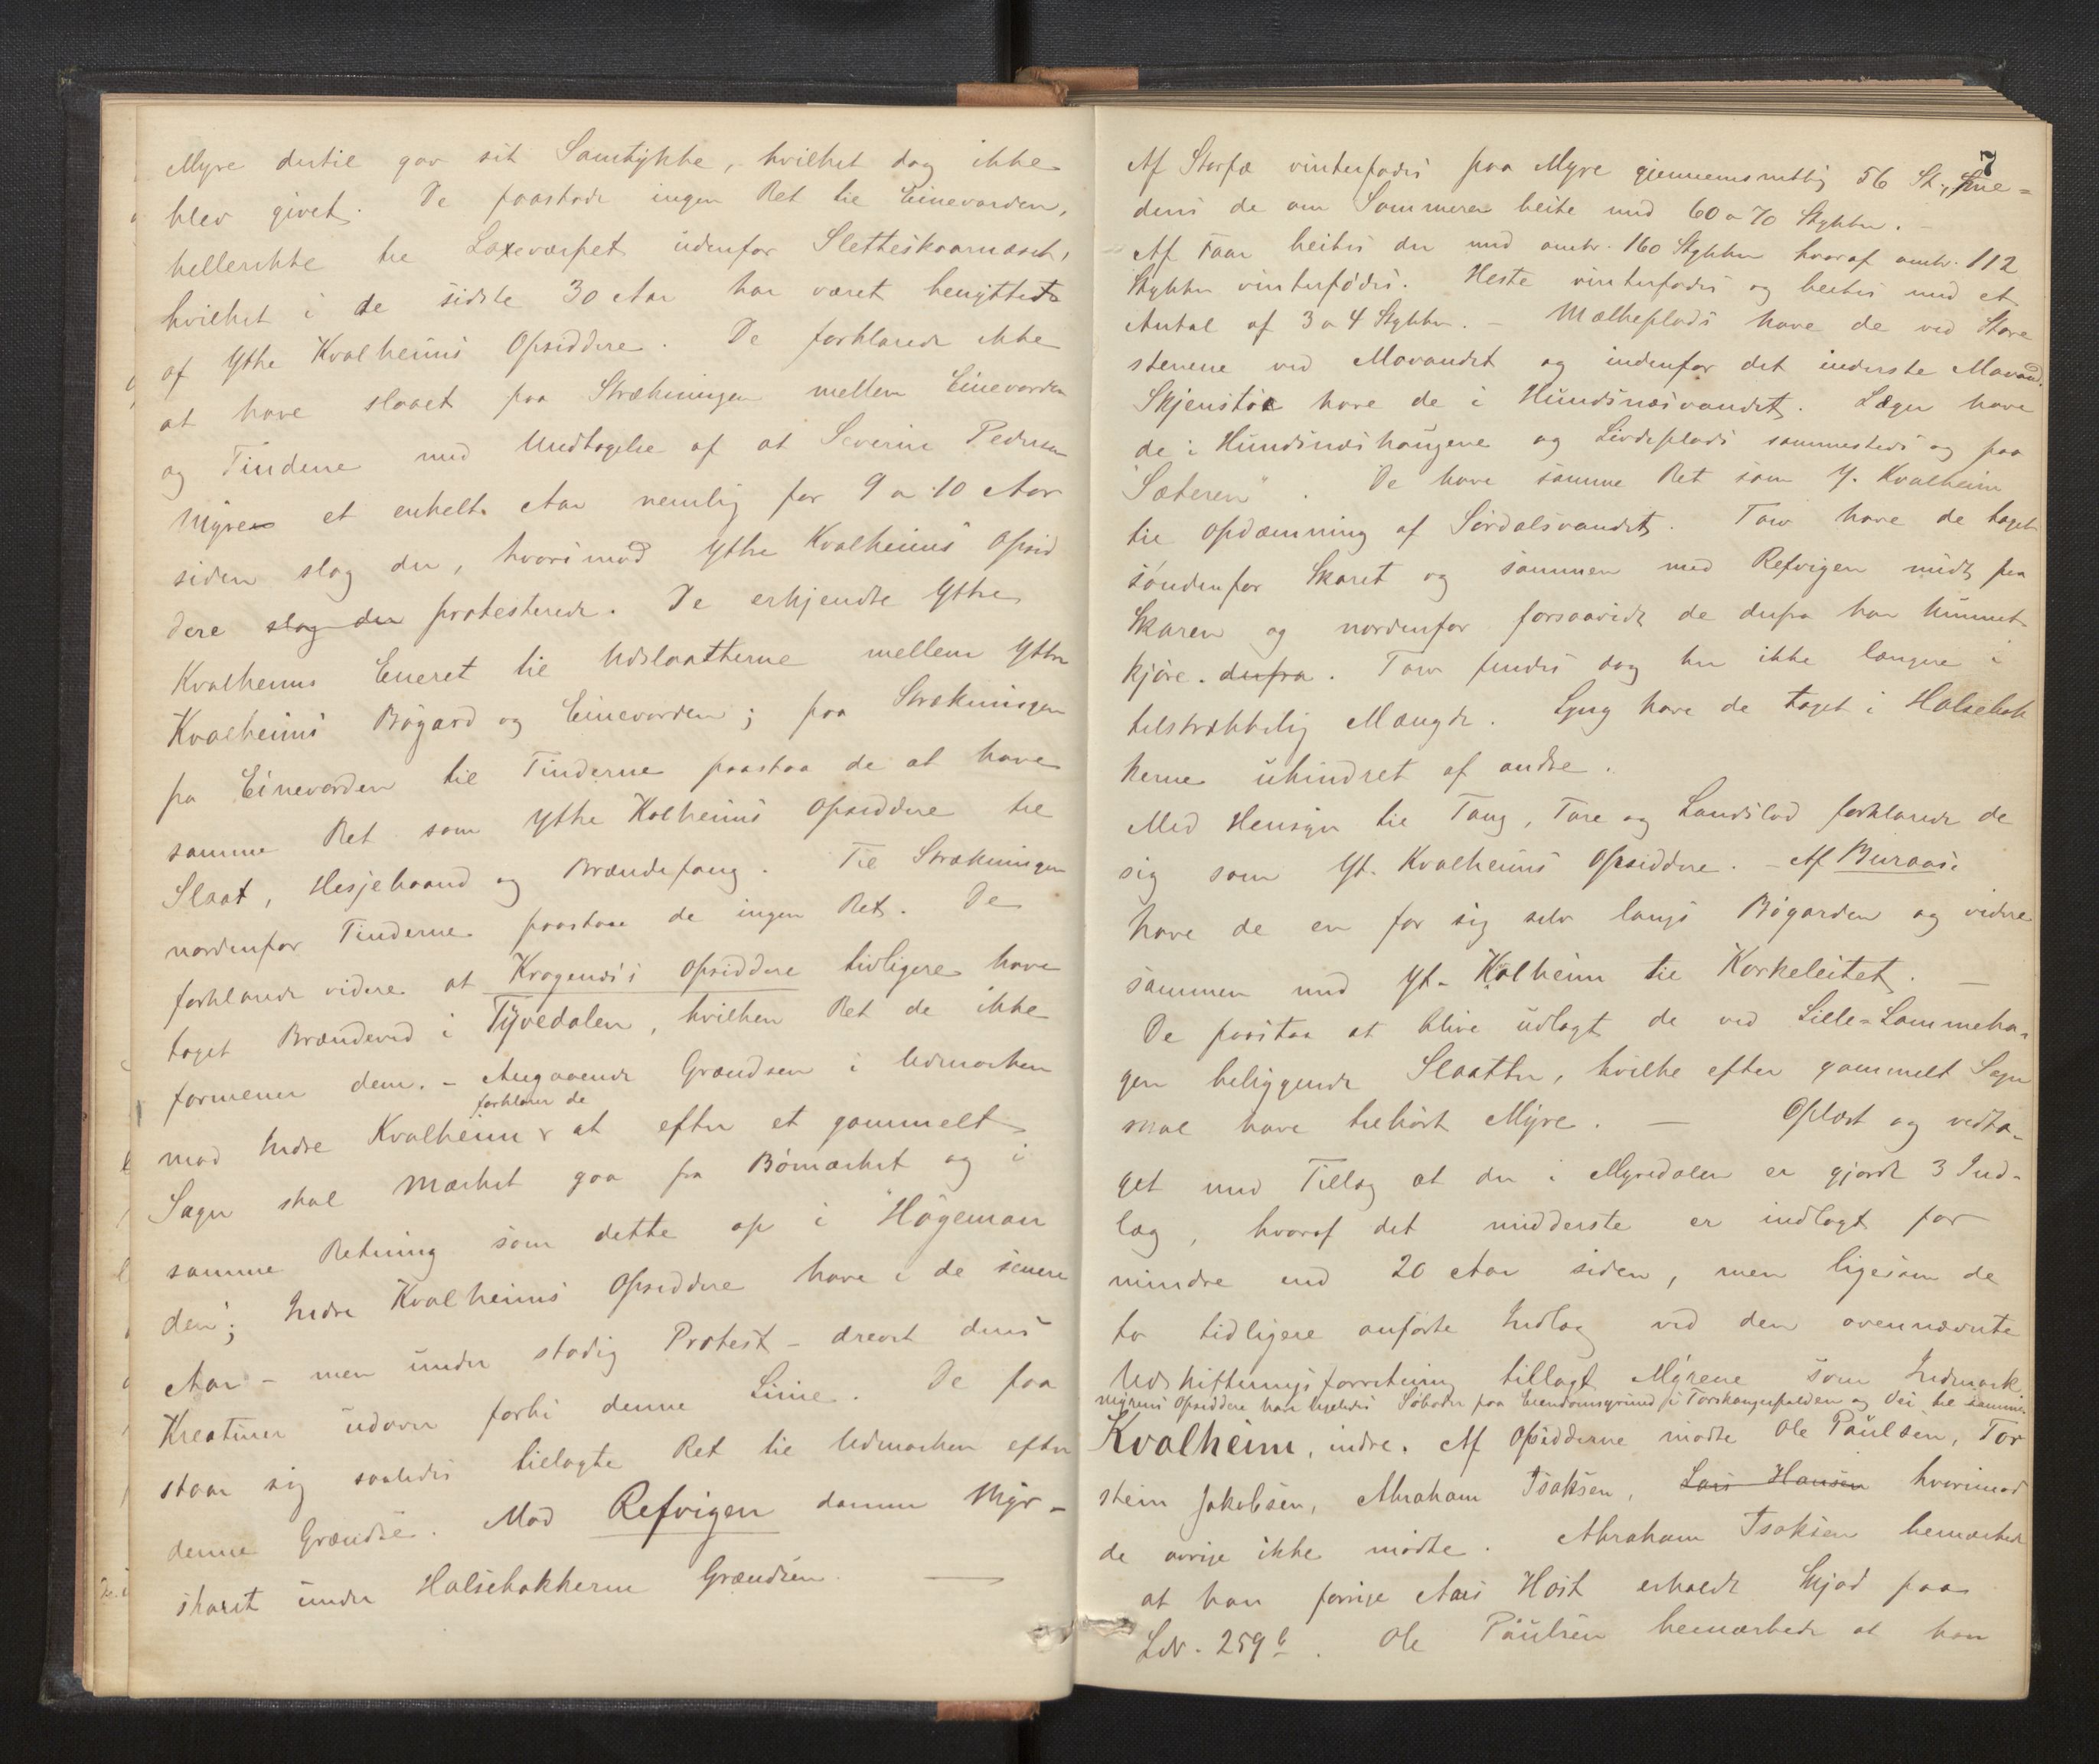 Myre dertil gav sit Samtykke, hvilket dog ikke
blev givet. De paastode ingen Ret til Einevarden,
hellerikke til Laxeværpet udenfor Sletteskaarnæset,
hvilket i de sidste 30 Aar har været benyttet
af Ytre Kvalheims Opsiddere. De forklarede ikke
at have slaaet paa Strækningen mellem Einevarden
og Tindene med Undtagelse af at Severin Pedersen
Myre et enkelt Aar nemlig for 9 a 10 Aar
siden slog der, hvorimod Ytre Kvalheims Opsid
dere slog der protesterede. De erkjendte Ytre
Kvalheims Eneret til Udslaatterne mellem Ytre
Kvalheims Bøgard og Einevarden; paa Strækningen
fra Einevarden til Tinderne paastaa de at have
samme Ret som Ytre Kalheims Opsiddere til
Slaat, Hesjebaand og Brændefang. Til Strækningen
nordenfor Tinderne paastaa de ingen Ret. De
forklarede videre at Kragenæs's Opsiddere tidligere have
taget Brændeved i Tyvedalen, hvilken Ret de ikke
formener dem. - Angaaende Grændsen i Udmarken
forklarer de
mod Indre Kvalheim at efter et gammelt
Sagn skal Mærket gaa fra Bømærket og i
samme Retning som dette op i "Høgeman
den"; Indre Kvalheims Opsiddere have i de senere
Aar - men under stadig Protest - drevet deres
Kreaturer udover forbi denne Linie. De paa
staar sig saaledes tillagte Ret til Udmarken efter
denne Grændse. Mod Refvigen danner Myr-
skaret under Halsebakkerne Grændsen. —
7
Af Storfæ vinterfødes paa Myre gjennemsnittlig 56 St., me-
dens de om Sommeren beite med 60 a 70 Stykker. -
Af Faar beites der med omtr. 160 Stykker hvoraf omtr. 112
Stykker vinterfødes. Heste vinterfødes og beites med et
Antal af 3 a 4 Stykker. - Mælkeplads have de ved Store
stenene ved Movandet og indenfor det inderste Movand.
Skjenstøe have de i Hundsnæsvandet. Læger have
de i Hundsnæshaugene og Livdeplads sammesteds og paa
"Sæteren". De have samme Ret som Y. Kvalheim
til Opdæmning af Sørdalsvandet. Torv have de taget
søndenfor Skaret og sammen med Refvigen midt paa
Skaren og nordenfor forsaavidt de derfra har kunnet
kjøre. derfra. Torv findes dog her ikke længere i
tilstrækkelig Mængde. Lyng have de taget i Halsebak
kerne uhindret af andre.
Med Hensyn til Tang, Tare og Landslod forklarede de
sig som Yt. Kvalheims Opsiddere. - Af Buraas.
have de en for sig selv langs Bøgarden og videre
sammen med Yt. Kvalheim til Korkeleitet. —
De paastaa at blive udlagt de ved Lille-Lammeha-
gen beliggende Slaatter, hvilke efter gammelt Sagn
skal have tilhørt Myre. — Oplæst og vedta-
get med Tillæg at der i Myredalen er gjorde 3 Ind-
læg, hvoraf det midderste er indlagt for
mindre end 20 Aar siden, men ligesom de
to tidligere anførte Indlæg ved den ovennævnte
Udskiftningsforretning tillagt Myrene som Indmark
Myrens Opsiddere have ligeledes Søboder paa Eiendomsgrund i Torskangerpolden og Vei til samme.
Kvalheim, indre. Af Opsidderne mødte Ole Paulsen, Tor
stein Jakobsen, Abraham Isaksen, Lars Hansen hvorimod
de øvrige ikke mødte. Abraham Isaksen bemærkede
at han forrige Aars Høst erholdt Skjød paa
LN. 259b. Ole Paulsen bemærkede at han